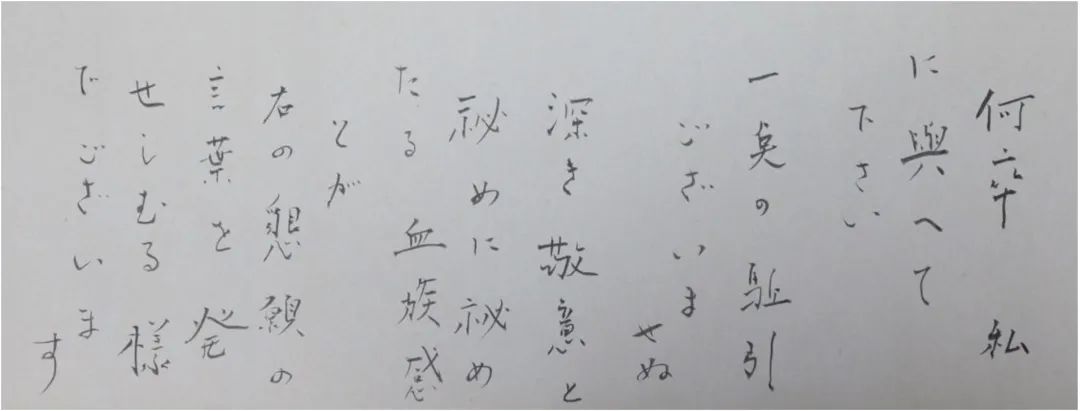 何卒 私
に與へて
下さい
一奌の 駈引
ございま
せぬ
深き 敬意と
祕めに祕め
たる 血族感
とが
右の懇願の
言葉を 発
せしむる 様
でございま
す